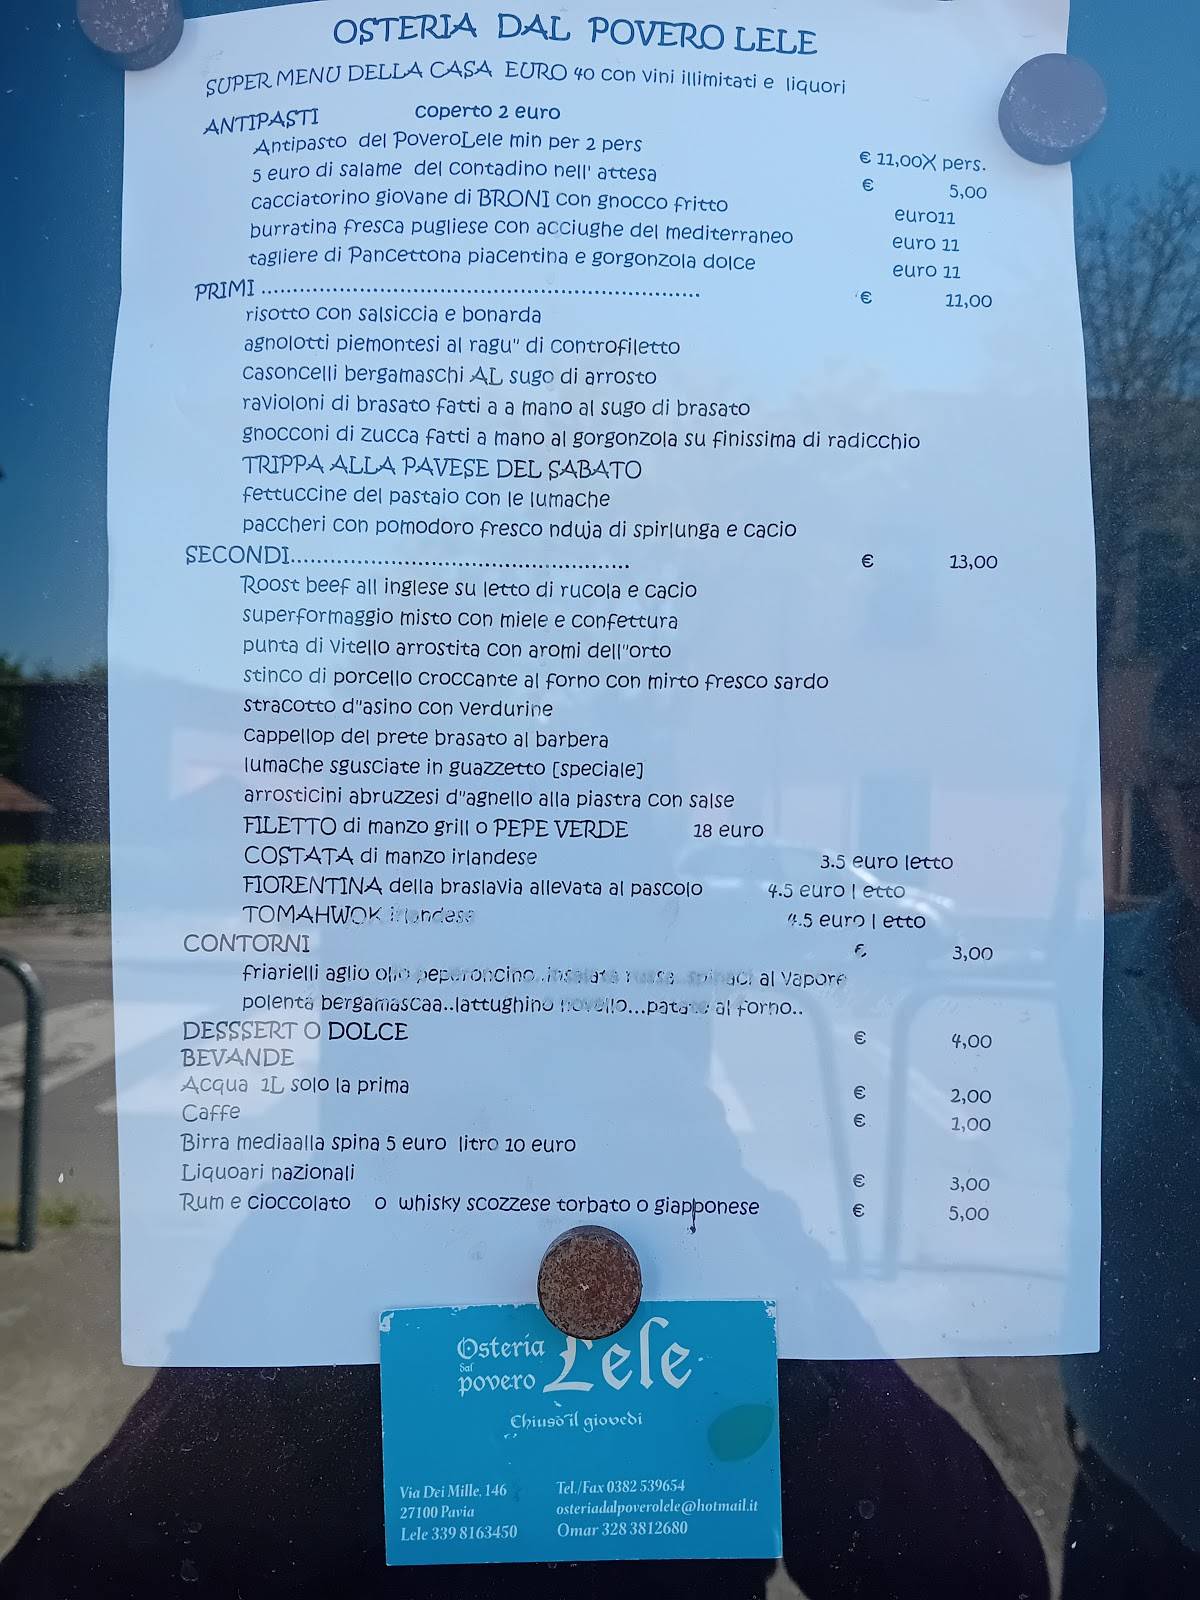 OSTERIA DAL POVERO LELE
SUPER MENU DELLA CASA EURO 40 con vini illimitati e liquori
ANTIPASTI coperto 2 euro
Antipasto del PoveroLele min per 2 pers € 11,00X pers.
5 euro di salame del contadino nell' attesa € 5,00
cacciatorino giovane di BRONI con gnocco fritto euro11
burratina fresca pugliese con acciughe del mediterraneo euro 11
tagliere di Pancettona piacentina e gorgonzola dolce euro 11
PRIMI ...................................................................... € 11,00
risotto con salsiccia e bonarda
agnolotti piemontesi al ragu" di controfiletto
casoncelli bergamaschi AL sugo di arrosto
ravioloni di brasato fatti a a mano al sugo di brasato
gnocconi di zucca fatti a mano al gorgonzola su finissima di radicchio
TRIPPA ALLA PAVESE DEL SABATO
fettuccine del pastaio con le lumache
paccheri con pomodoro fresco nduja di spirlunga e cacio
SECONDI.................................................... € 13,00
Roost beef all inglese su letto di rucola e cacio
superformaggio misto con miele e confettura
punta di vitello arrostita con aromi dell"orto
stinco di porcello croccante al forno con mirto fresco sardo
stracotto d"asino con verdurine
cappellop del prete brasato al barbera
lumache sgusciate in guazzetto [speciale]
arrosticini abruzzesi d"agnello alla piastra con salse
FILETTO di manzo grill o PEPE VERDE 18 euro
COSTATA di manzo irlandese 3.5 euro letto
FIORENTINA della braslavia allevata al pascolo 4.5 euro l etto
TOMAHWOK irlandese 4.5 euro l etto
CONTORNI € 3,00
friarielli aglio olio peperoncino..insalata russa..spinaci al vapore
polenta bergamascaa..lattughino novello...patate al forno..
DESSSERT O DOLCE € 4,00
BEVANDE
Acqua 1L solo la prima € 2,00
Caffe € 1,00
Birra mediaalla spina 5 euro litro 10 euro
Liquoari nazionali € 3,00
Rum e cioccolato o whisky scozzese torbato o giapponese € 5,00
Osteria
dal
povero Lele
Chiuso il giovedi
Via Dei Mille, 146 Tel./Fax 0382 539654
27100 Pavia osteriadalpoverolele@hotmail.it
Lele 339 8163450 Omar 328 3812680